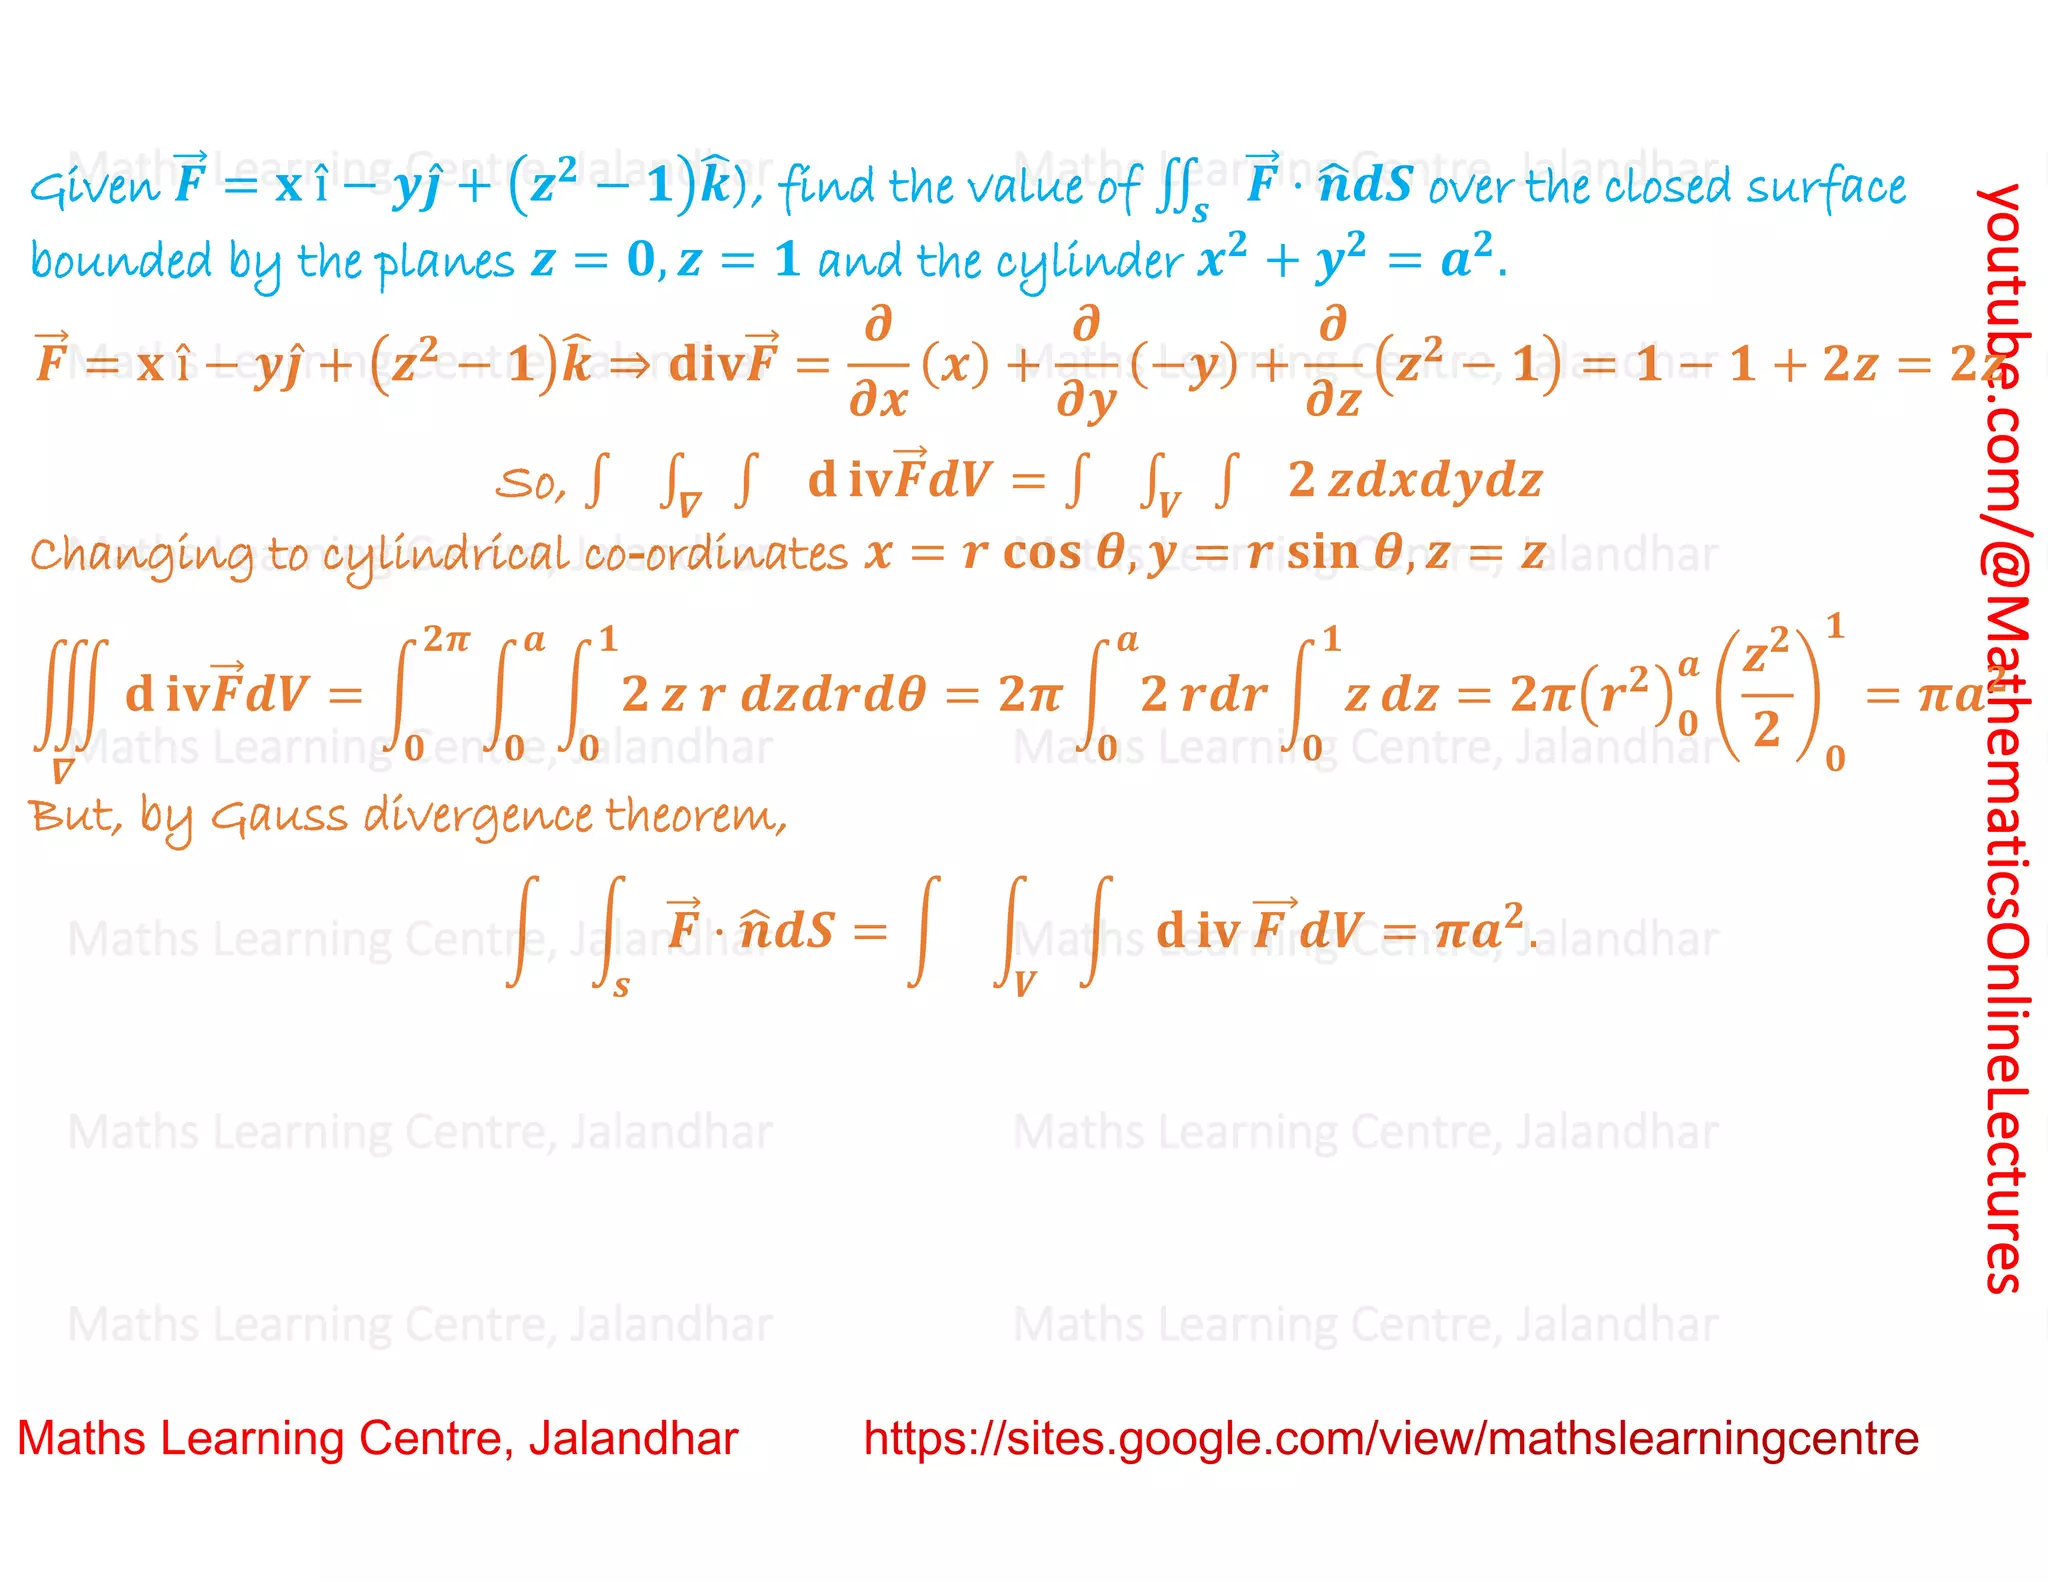 Given F⃗ = x î − yĵ + (z² − 1)k̂), find the value of ∬ₛ F⃗ · n̂dS over the closed surface
bounded by the planes z = 0, z = 1 and the cylinder x² + y² = a².
F⃗ = x î − yĵ + (z² − 1)k̂ ⇒ divF⃗ = ∂/∂x (x) + ∂/∂y (−y) + ∂/∂z (z² − 1) = 1 − 1 + 2z = 2z
So, ∫ ∫_∇ ∫ d ivF⃗dV = ∫ ∫_V ∫ 2 zdxdydz
Changing to cylindrical co-ordinates x = r cos θ, y = r sin θ, z = z
∭_∇ d ivF⃗dV = ∫₀^2π ∫₀^a ∫₀^1 2 z r dzdrdθ = 2π ∫₀^a 2 rdr ∫₀^1 z dz = 2π(r²)₀^a (z²/2)₀^1 = πa²
But, by Gauss divergence theorem,
∫ ∫ₛ F⃗ · n̂dS = ∫ ∫_V ∫ d iv F⃗ dV = πa².
youtube.com/@MathematicsOnlineLectures
Maths Learning Centre, Jalandhar Maths Learning Centre, Jalandhar
Maths Learning Centre, Jalandhar Maths Learning Centre, Jalandhar
Maths Learning Centre, Jalandhar Maths Learning Centre, Jalandhar
Maths Learning Centre, Jalandhar Maths Learning Centre, Jalandhar
Maths Learning Centre, Jalandhar Maths Learning Centre, Jalandhar
Maths Learning Centre, Jalandhar Maths Learning Centre, Jalandhar
Maths Learning Centre, Jalandhar Maths Learning Centre, Jalandhar
Maths Learning Centre, Jalandhar https://sites.google.com/view/mathslearningcentre